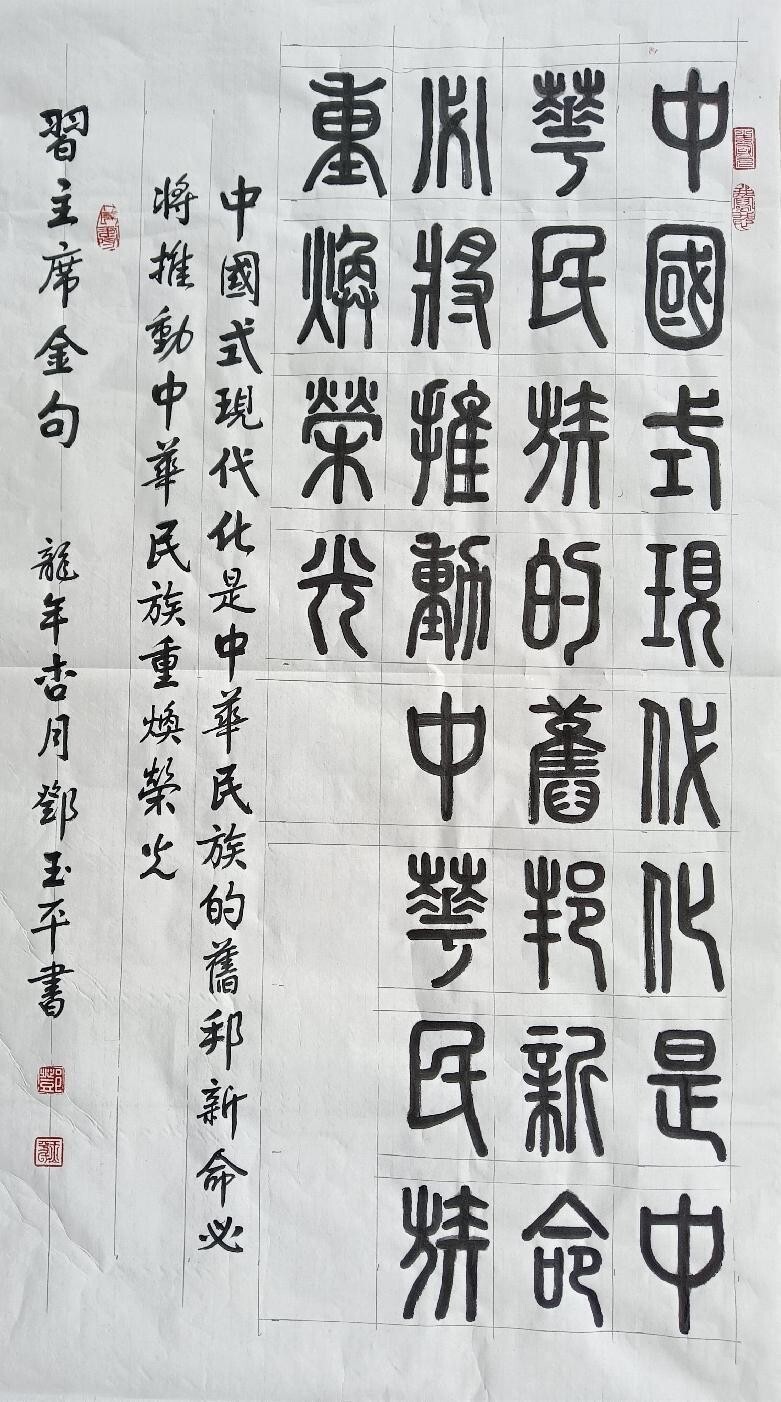 中國式現代化是中
華民族的舊邦新命
必將推動中華民族
重煥榮光
中國式現代化是中華民族的舊邦新命必
將推動中華民族重煥榮光
習主席金句 龍年杏月鄧玉平書